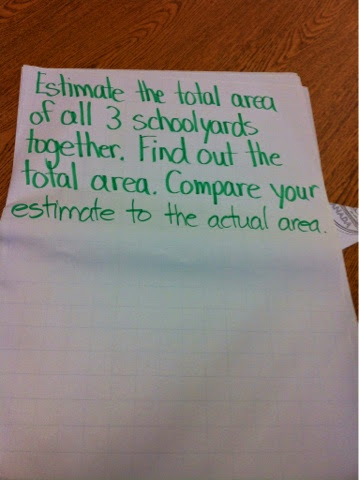 Estimate the total area
of all 3 schoolyards
together. Find out the
total area. Compare your
estimate to the actual area.